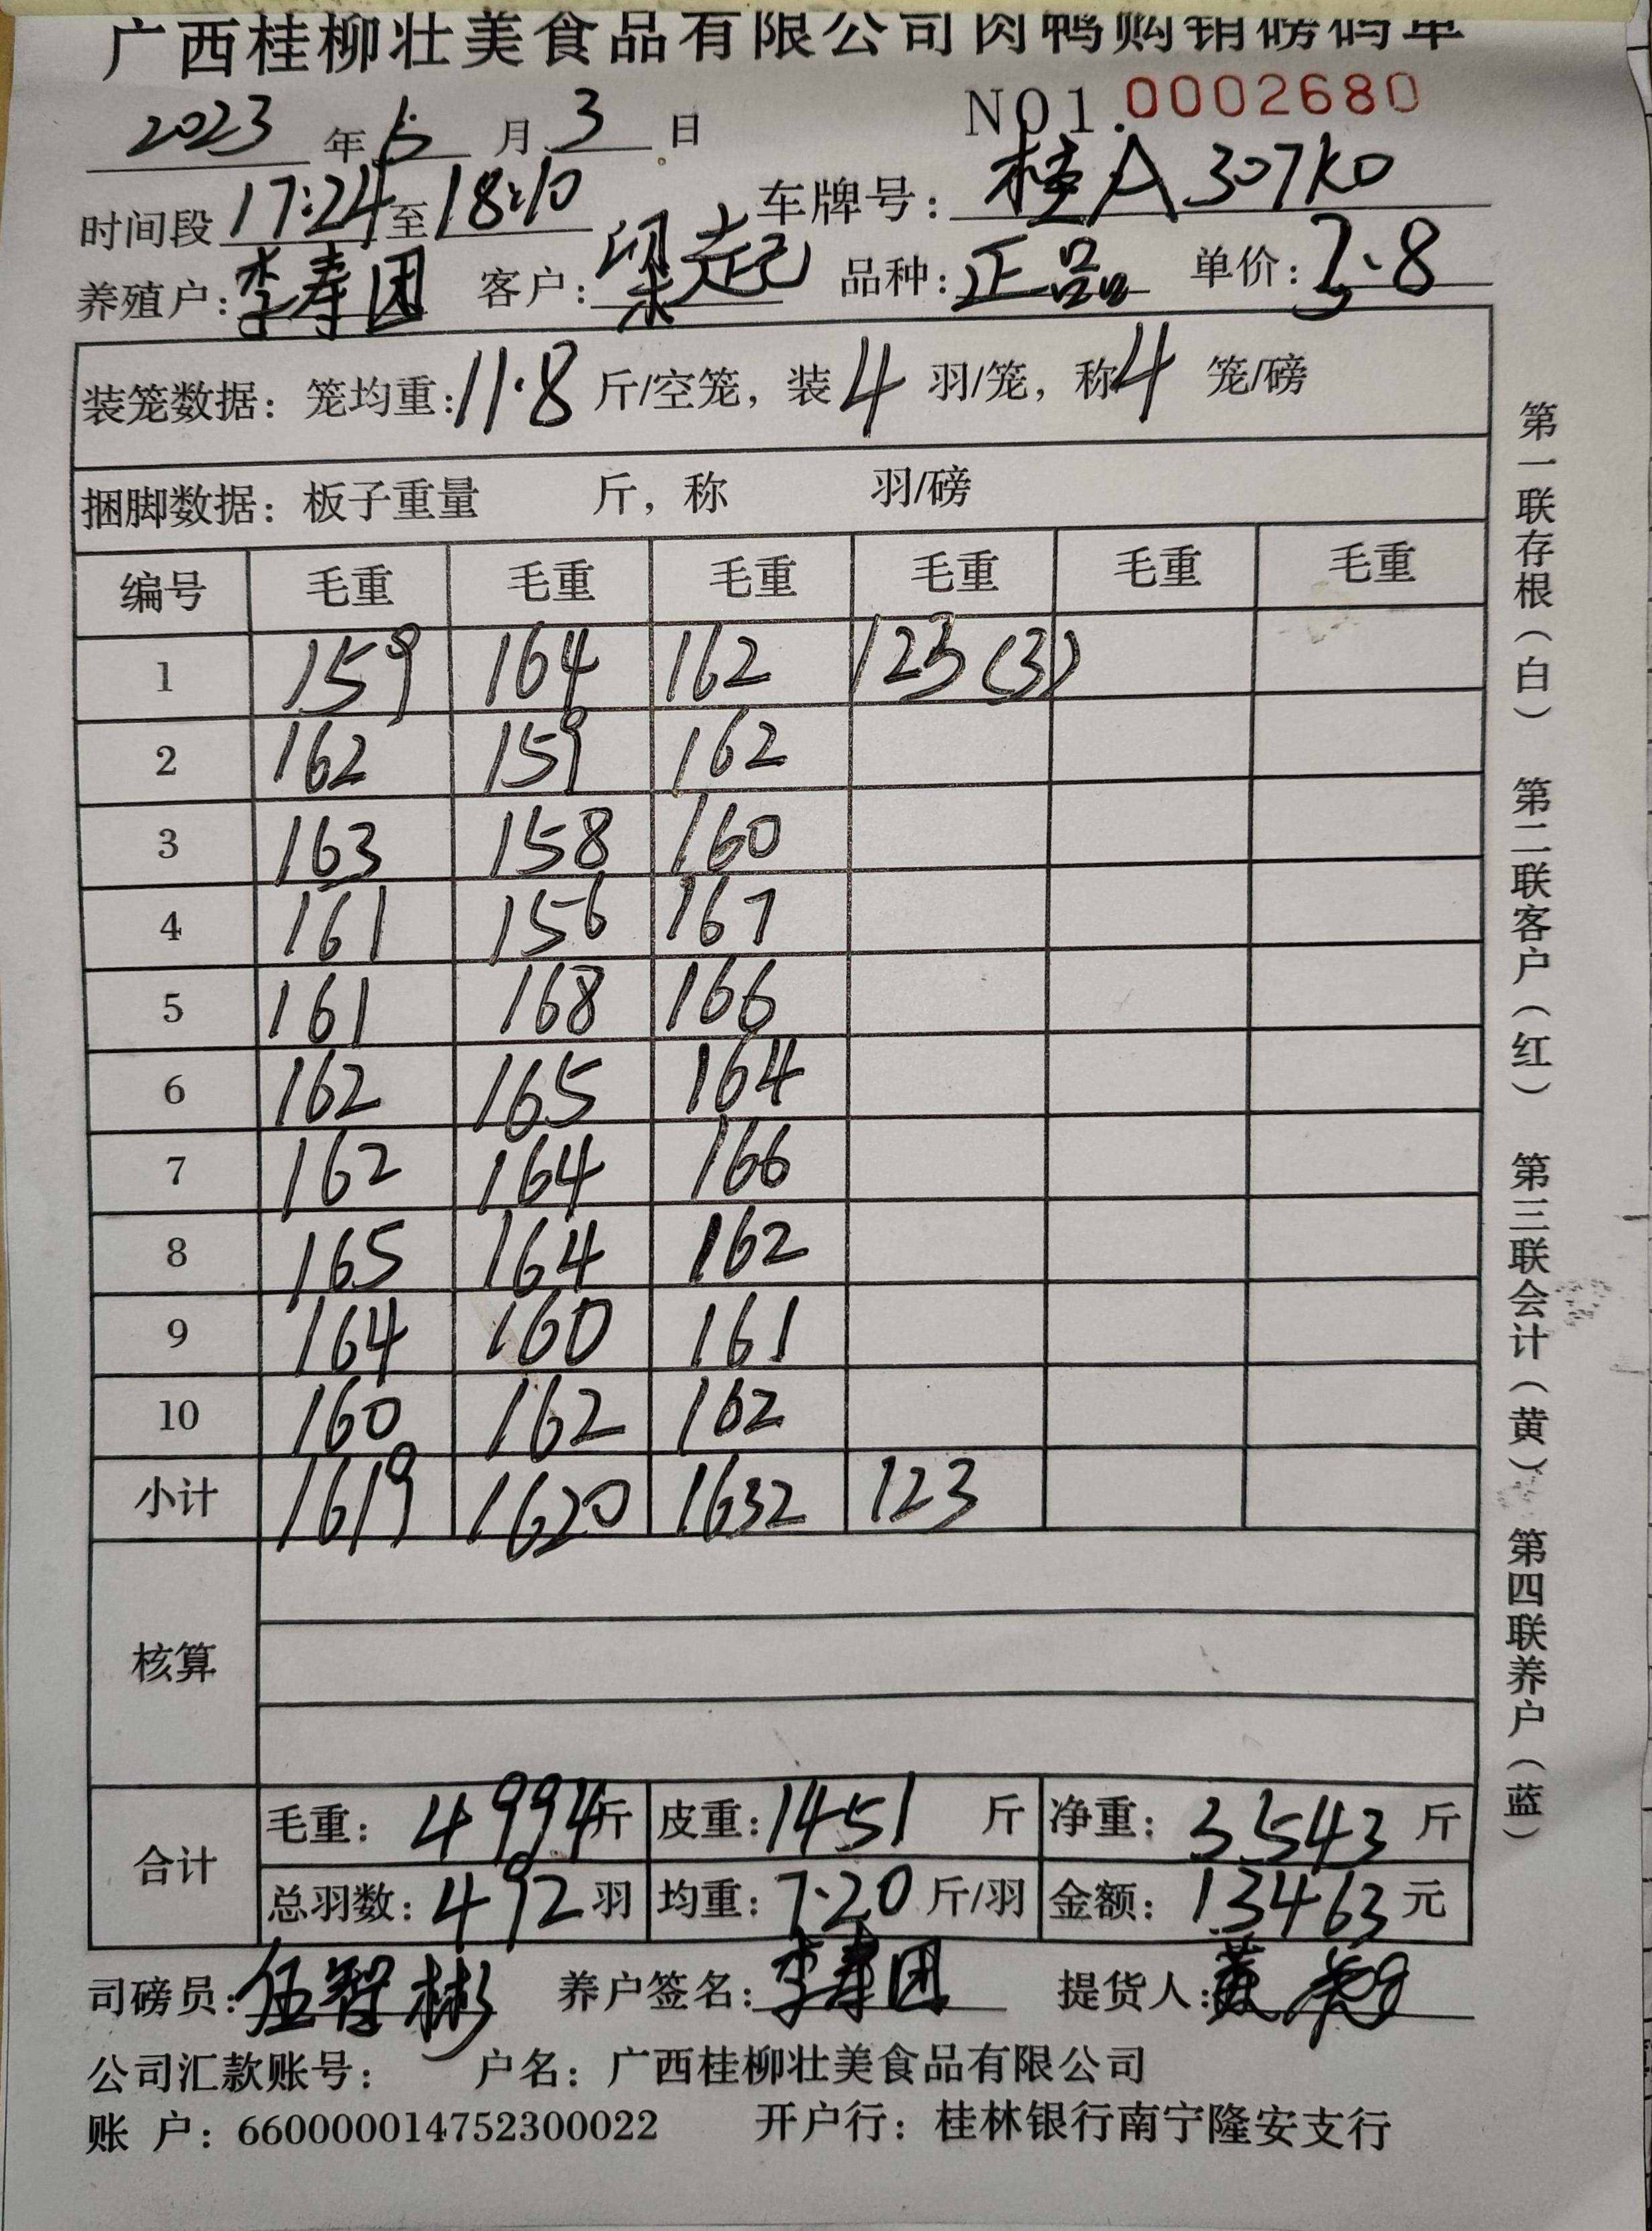 广西桂柳壮美食品有限公司肉鸭购销磅码单
2023年5月3日 NO1.0002680
时间段17:24至18:10 车牌号：桂A307K0
养殖户：李寿团 客户：梁起 品种：正品 单价：3.8
装笼数据：笼均重：11.8斤/空笼，装4羽/笼，称4笼/磅
捆脚数据：板子重量 斤，称 羽/磅
编号 毛重 毛重 毛重 毛重 毛重 毛重
1 159 164 162 123(3)
2 162 159 162
3 163 158 160
4 161 156 167
5 161 168 166
6 162 165 164
7 162 164 166
8 165 164 162
9 164 160 161
10 160 162 162
小计 1619 1620 1632 123
核算
合计 毛重：4994斤 皮重：1451斤 净重：3543斤
总羽数：492羽 均重：7.20斤/羽 金额：13463元
司磅员：伍智彬 养户签名：李寿团 提货人：黄
公司汇款账号： 户名：广西桂柳壮美食品有限公司
账 户：660000014752300022 开户行：桂林银行南宁隆安支行
第一联存根（白） 第二联客户（红） 第三联会计（黄） 第四联养户（蓝）